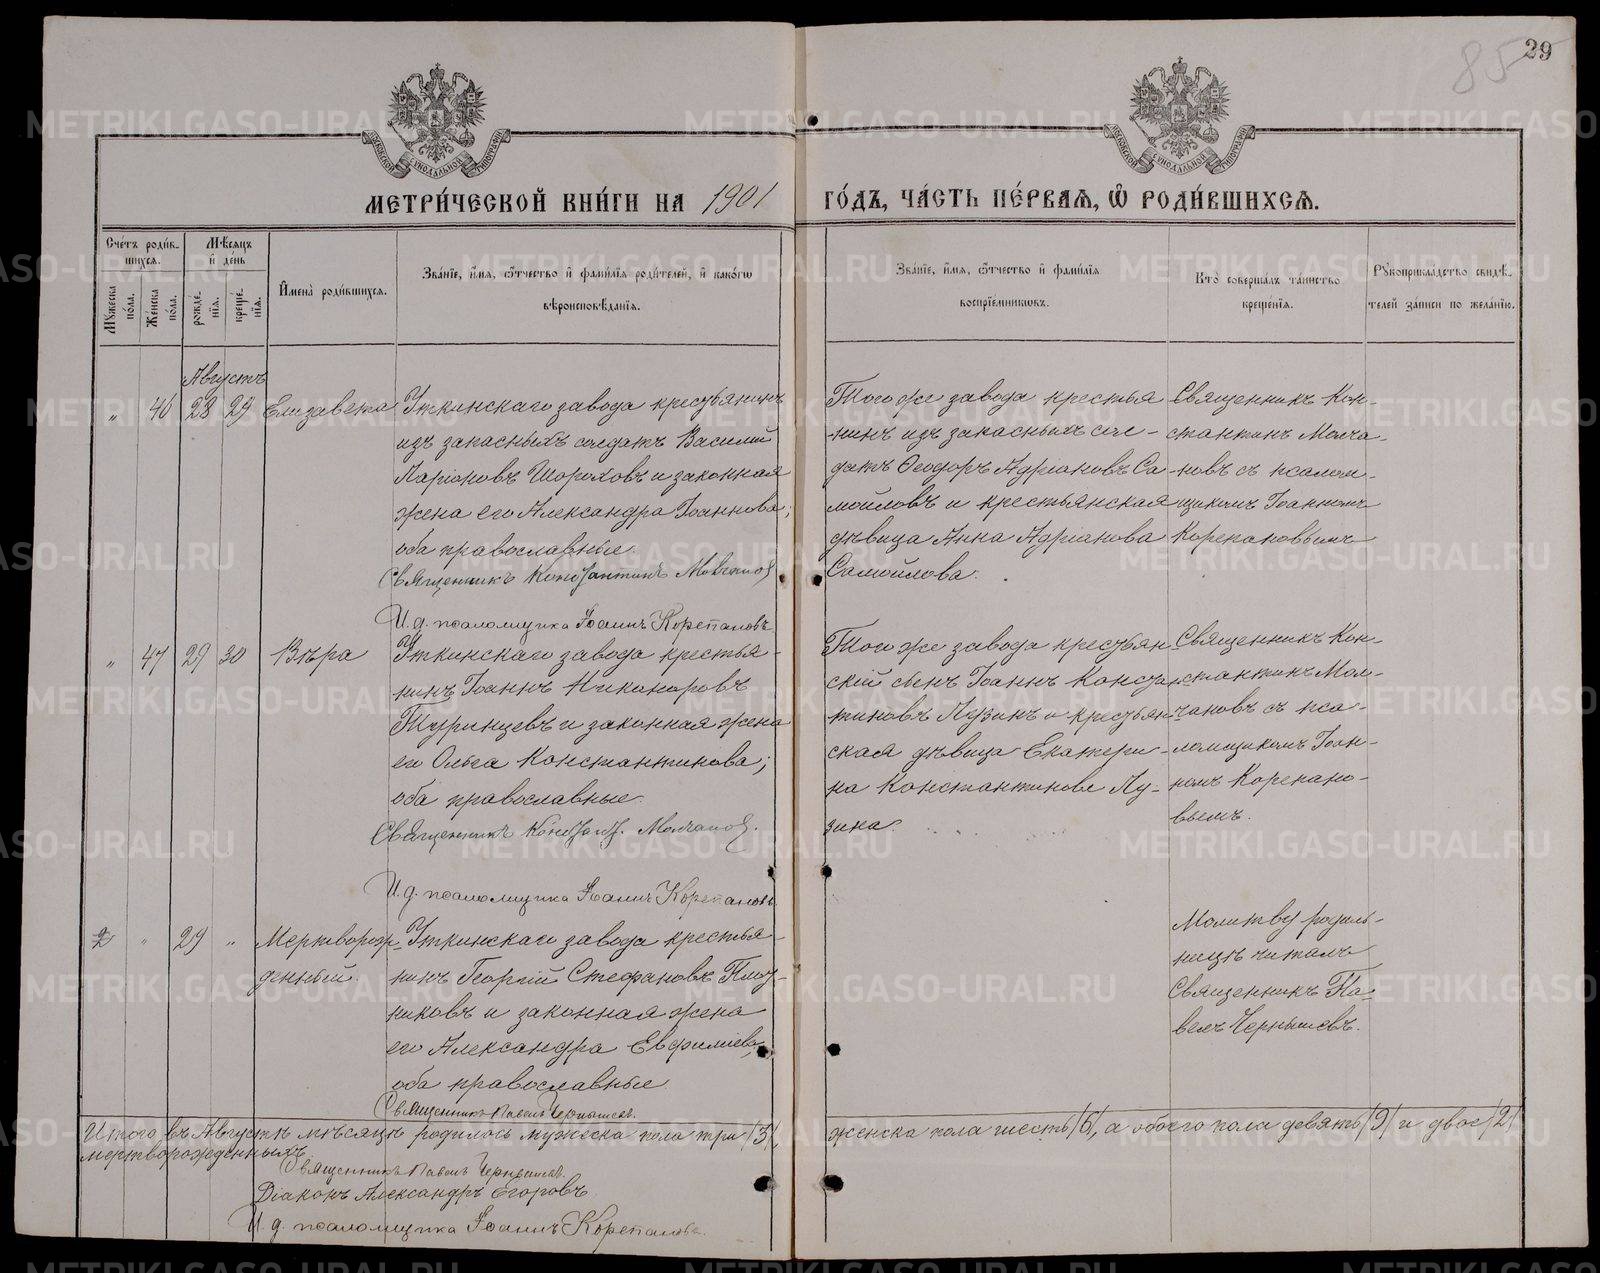 29
85
МЕТРИ́ЧЕСКОЙ КНИ́ГИ НА 1901 ГО́ДЪ, ЧА́СТЬ ПЕ́РВАЯ, Ѡ РОДИ́ВШИХСЯ.
Сче́тъ роди́в-
шихся.
Му́жеска по́ла.
Же́нска по́ла.
Мѣ́сяцъ
и҆ де́нь
рожде́нїя.
креще́нїя.
И҆мена̀ роди́вшихся.
Зва́нїе, и҆́мя, ѻ҆́тчество и҆ фами́лїя роди́телей, и҆ како́гѡ
вѣроисповѣ́данїя.
Зва́нїе, и҆́мя, ѻ҆́тчество и҆ фами́лїя
воспрїе́мниковъ.
Кто̀ соверша́лъ та́инство
креще́нїя.
Рꙋкоприкла́дство свидѣ́-
телей за́писи по жела́нїю.
Августъ
" 46 28 29 Елизавета
Уткинскаго завода крестьянинъ
изъ запасныхъ солдатъ Василий
Ларіоновъ Шороховъ и законная
жена его Александра Іоаннова;
оба православные.
Священникъ Константинъ Молчановъ
И. д. псаломщика Іоаннъ Корепановъ
Того же завода крестья-
нинъ изъ запасныхъ сол-
датъ Ѳеодоръ Адріановъ Са-
мойловъ и крестьянская
дѣвица Анна Адріанова
Самойлова.
Священникъ Кон-
стантинъ Молча-
новъ съ псалом-
щикомъ Іоанномъ
Корепановымъ
" 47 29 30 Вѣра
Уткинскаго завода крестья-
нинъ Іоаннъ Никаноровъ
Туринцевъ и законная жена
его Ольга Константинова;
оба православные.
Священникъ Констант. Молчановъ.
И. д. псаломщика Іоаннъ Корепановъ
Того же завода крестьян-
скій сынъ Іоаннъ Констан-
тиновъ Пузинъ и крестьян-
ская дѣвица Екатери-
на Константинова Пу-
зина.
Священникъ Кон-
стантинъ Мол-
чановъ съ пса-
ломщикомъ Іоан-
номъ Корепано-
вымъ.
2 " 29 " Мертворож-
денный.
Уткинскаго завода крестья-
нинъ Георгій Стефановъ Плот-
никовъ и законная жена
его Александра Евфиміева,
оба православные
Священникъ Павелъ Чернышевъ.
Молитву родиль-
ницѣ читалъ
Священникъ Па-
велъ Чернышевъ.
Итого въ Августѣ мѣсяцѣ родилось мужеска пола три /3/, женска пола шесть /6/, а обоего пола девять /9/ и двое /2/
мертворожденныхъ
Священникъ Павелъ Чернышевъ
Діаконъ Александръ Егоровъ
И. д. псаломщика Іоаннъ Корепановъ.
METRIKI.GASO-URAL.RU